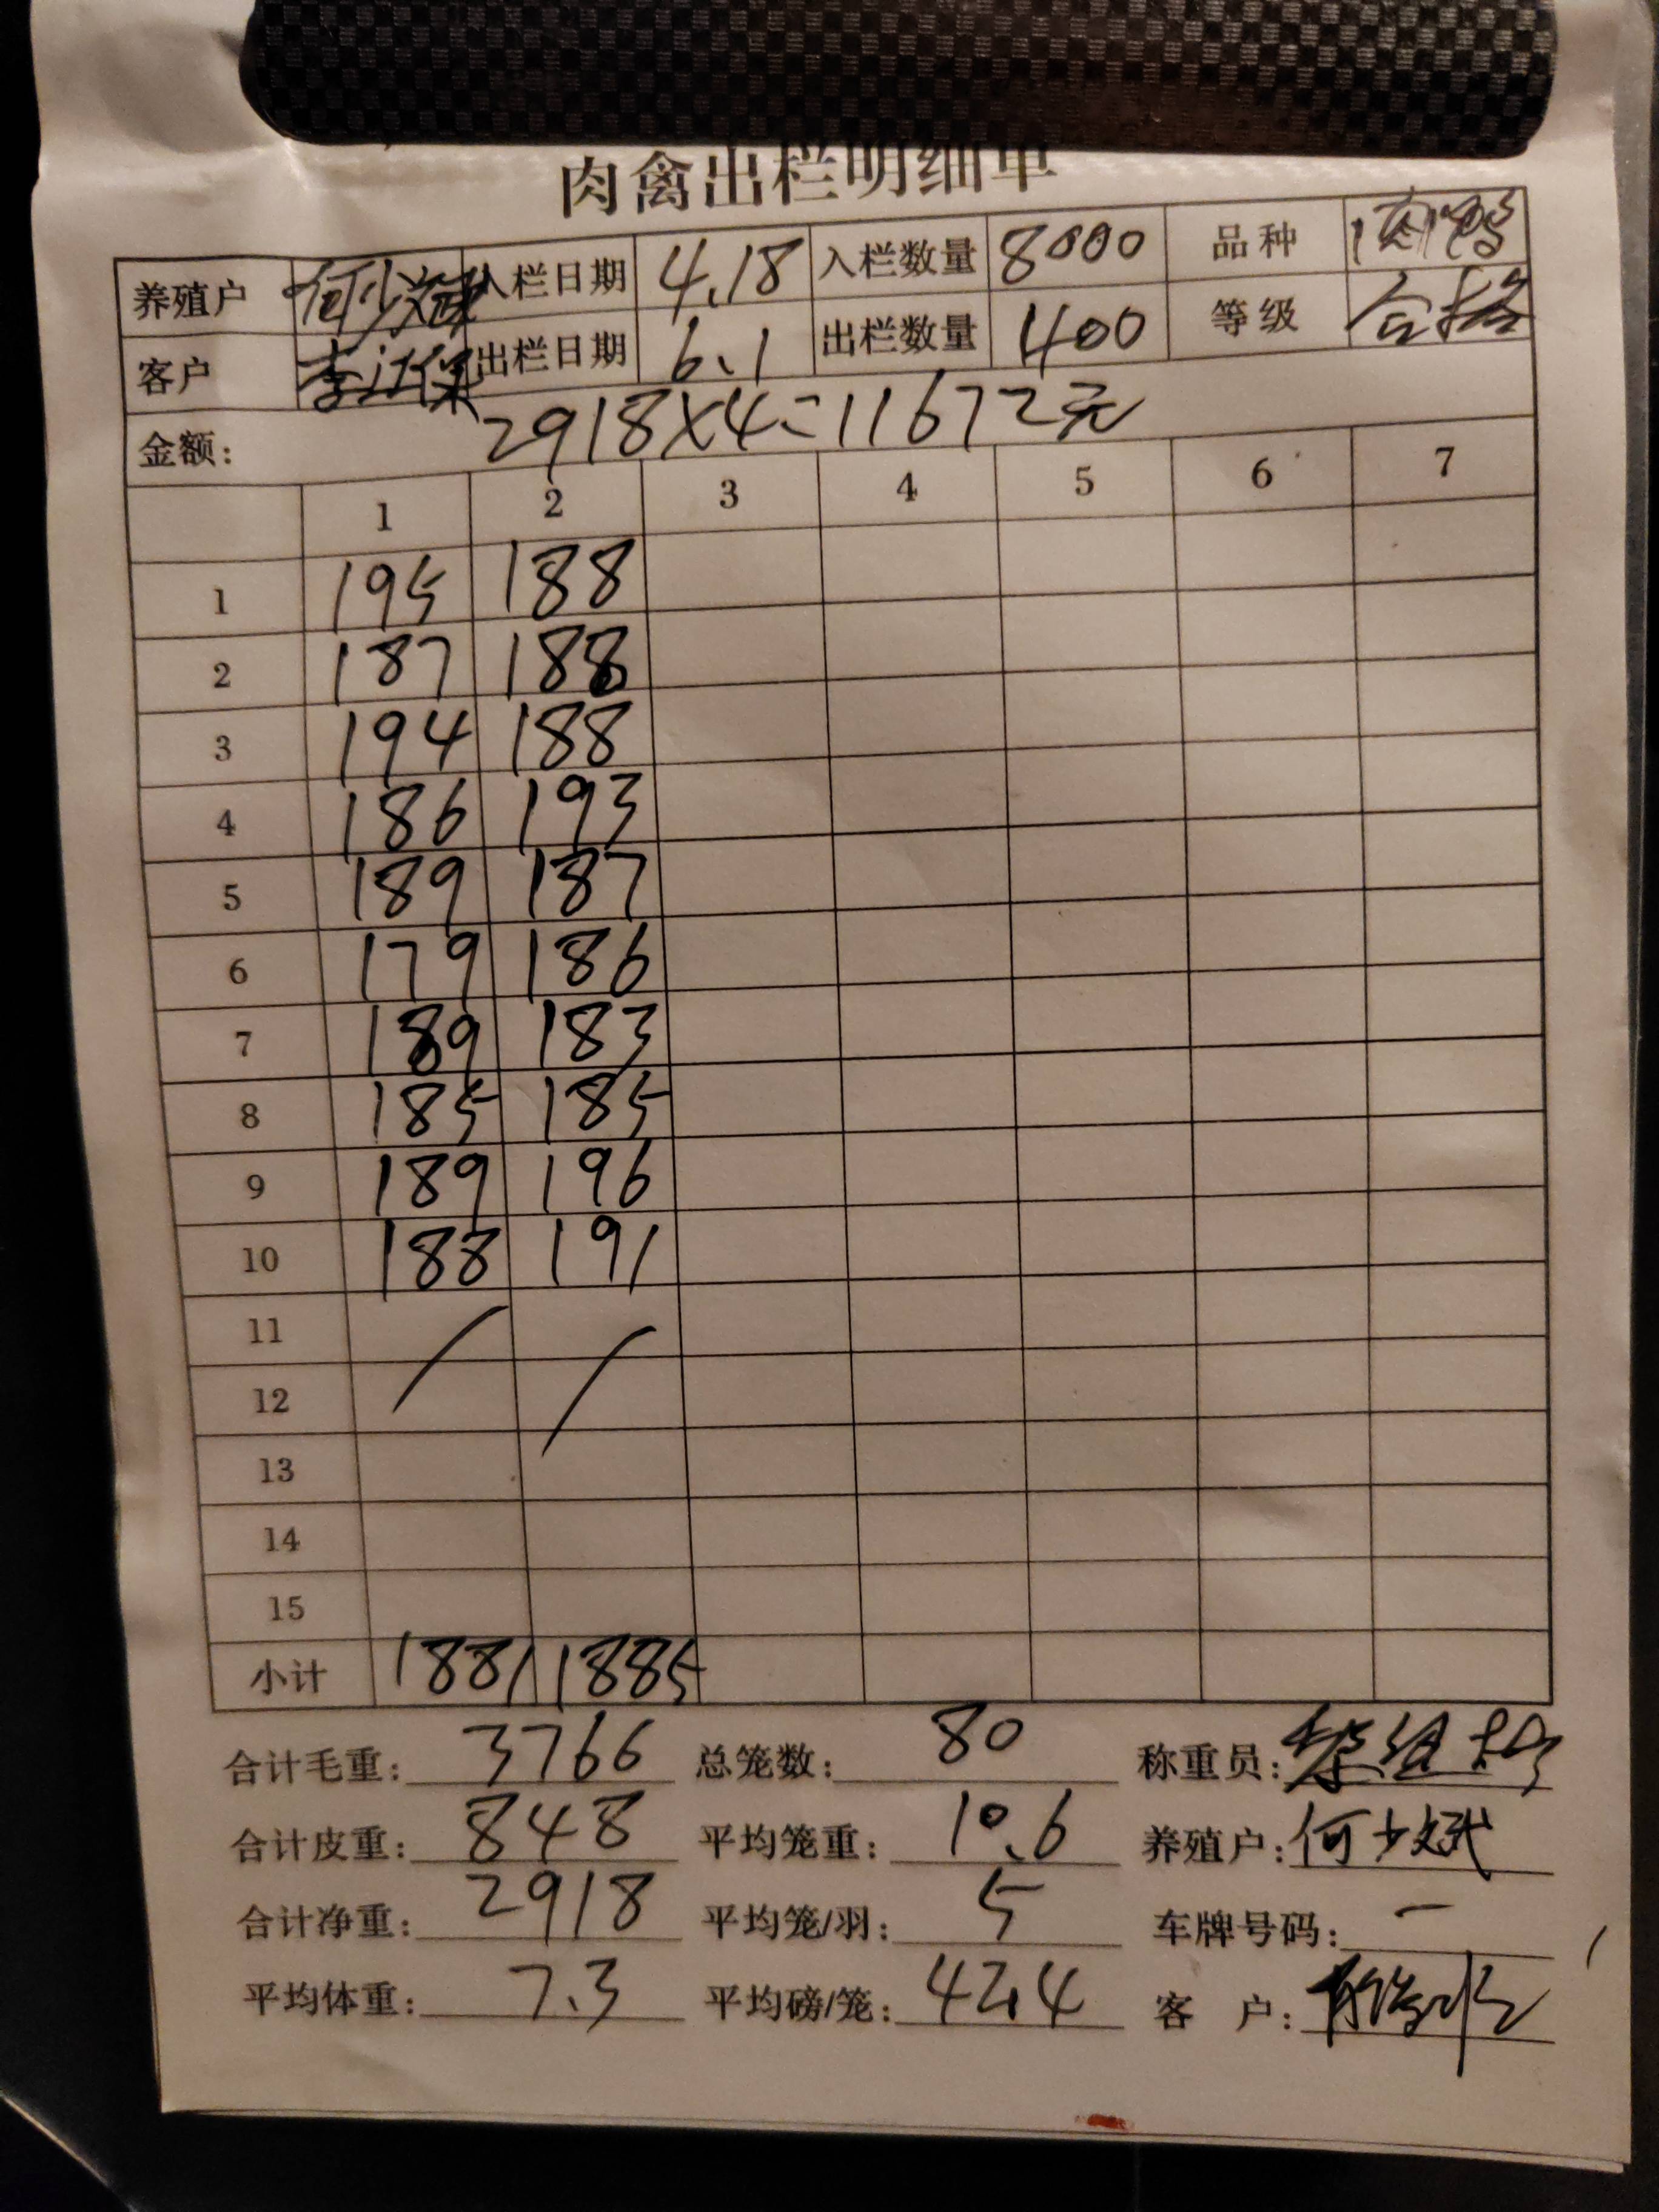 肉禽出栏明细单
养殖户 何少斌 入栏日期 4.18 入栏数量 8000 品种 肉鸭
客户 李江保 出栏日期 6.1 出栏数量 400 等级 合格
金额: 2918×4=11672元
1 2 3 4 5 6 7
1 195 188
2 187 188
3 194 188
4 186 193
5 189 187
6 179 186
7 189 183
8 185 185
9 189 196
10 188 191
11
12
13
14
15
小计 1881 1885
合计毛重: 3766 总笼数: 80 称重员:
合计皮重: 848 平均笼重: 10.6 养殖户: 何少斌
合计净重: 2918 平均笼/羽: 5 车牌号码: 一
平均体重: 7.3 平均磅/笼: 42.4 客 户: